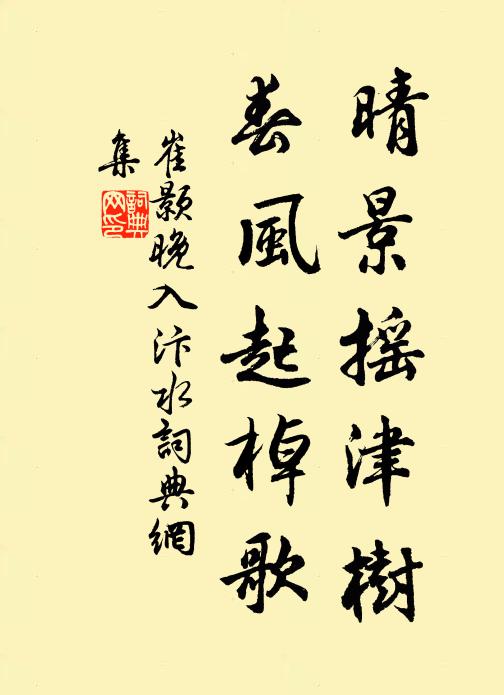 晴景摇津樹
春風起棹歌
崔颢晚入汴水詞典網
集
詞典
网印